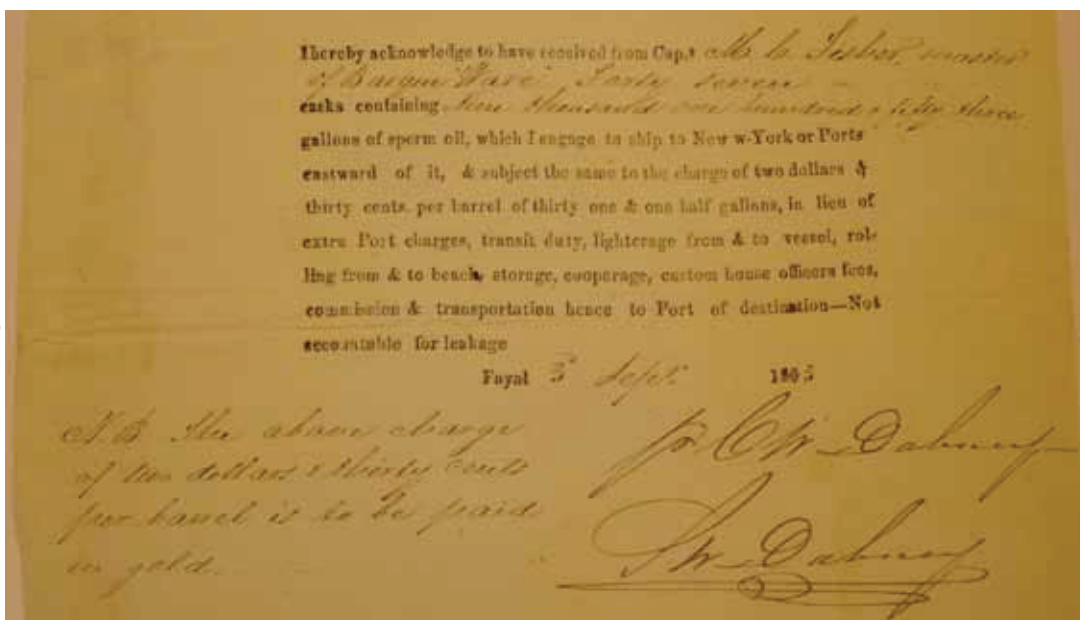 I hereby acknowledge to have received from Cap.t M. C. Fisher, master
of Barque Wave Forty seven
casks containing nine thousand one hundred & fifty three
gallons of sperm oil, which I engage to ship to New w-York or Ports
eastward of it, & subject the same to the charge of two dollars &
thirty cents. per barrel of thirty one & one half gallons, in lieu of
extra Port charges, transit duty, lighterage from & to vessel, rol-
ling from & to beach, storage, cooperage, custom house officers fees,
commission & transportation hence to Port of destination—Not
accountable for leakage
Fayal 3 Sept. 1865
N.B. The above charge
of two dollars & thirty cents
per barrel is to be paid
in gold.
p. C W Dabney
S W Dabney